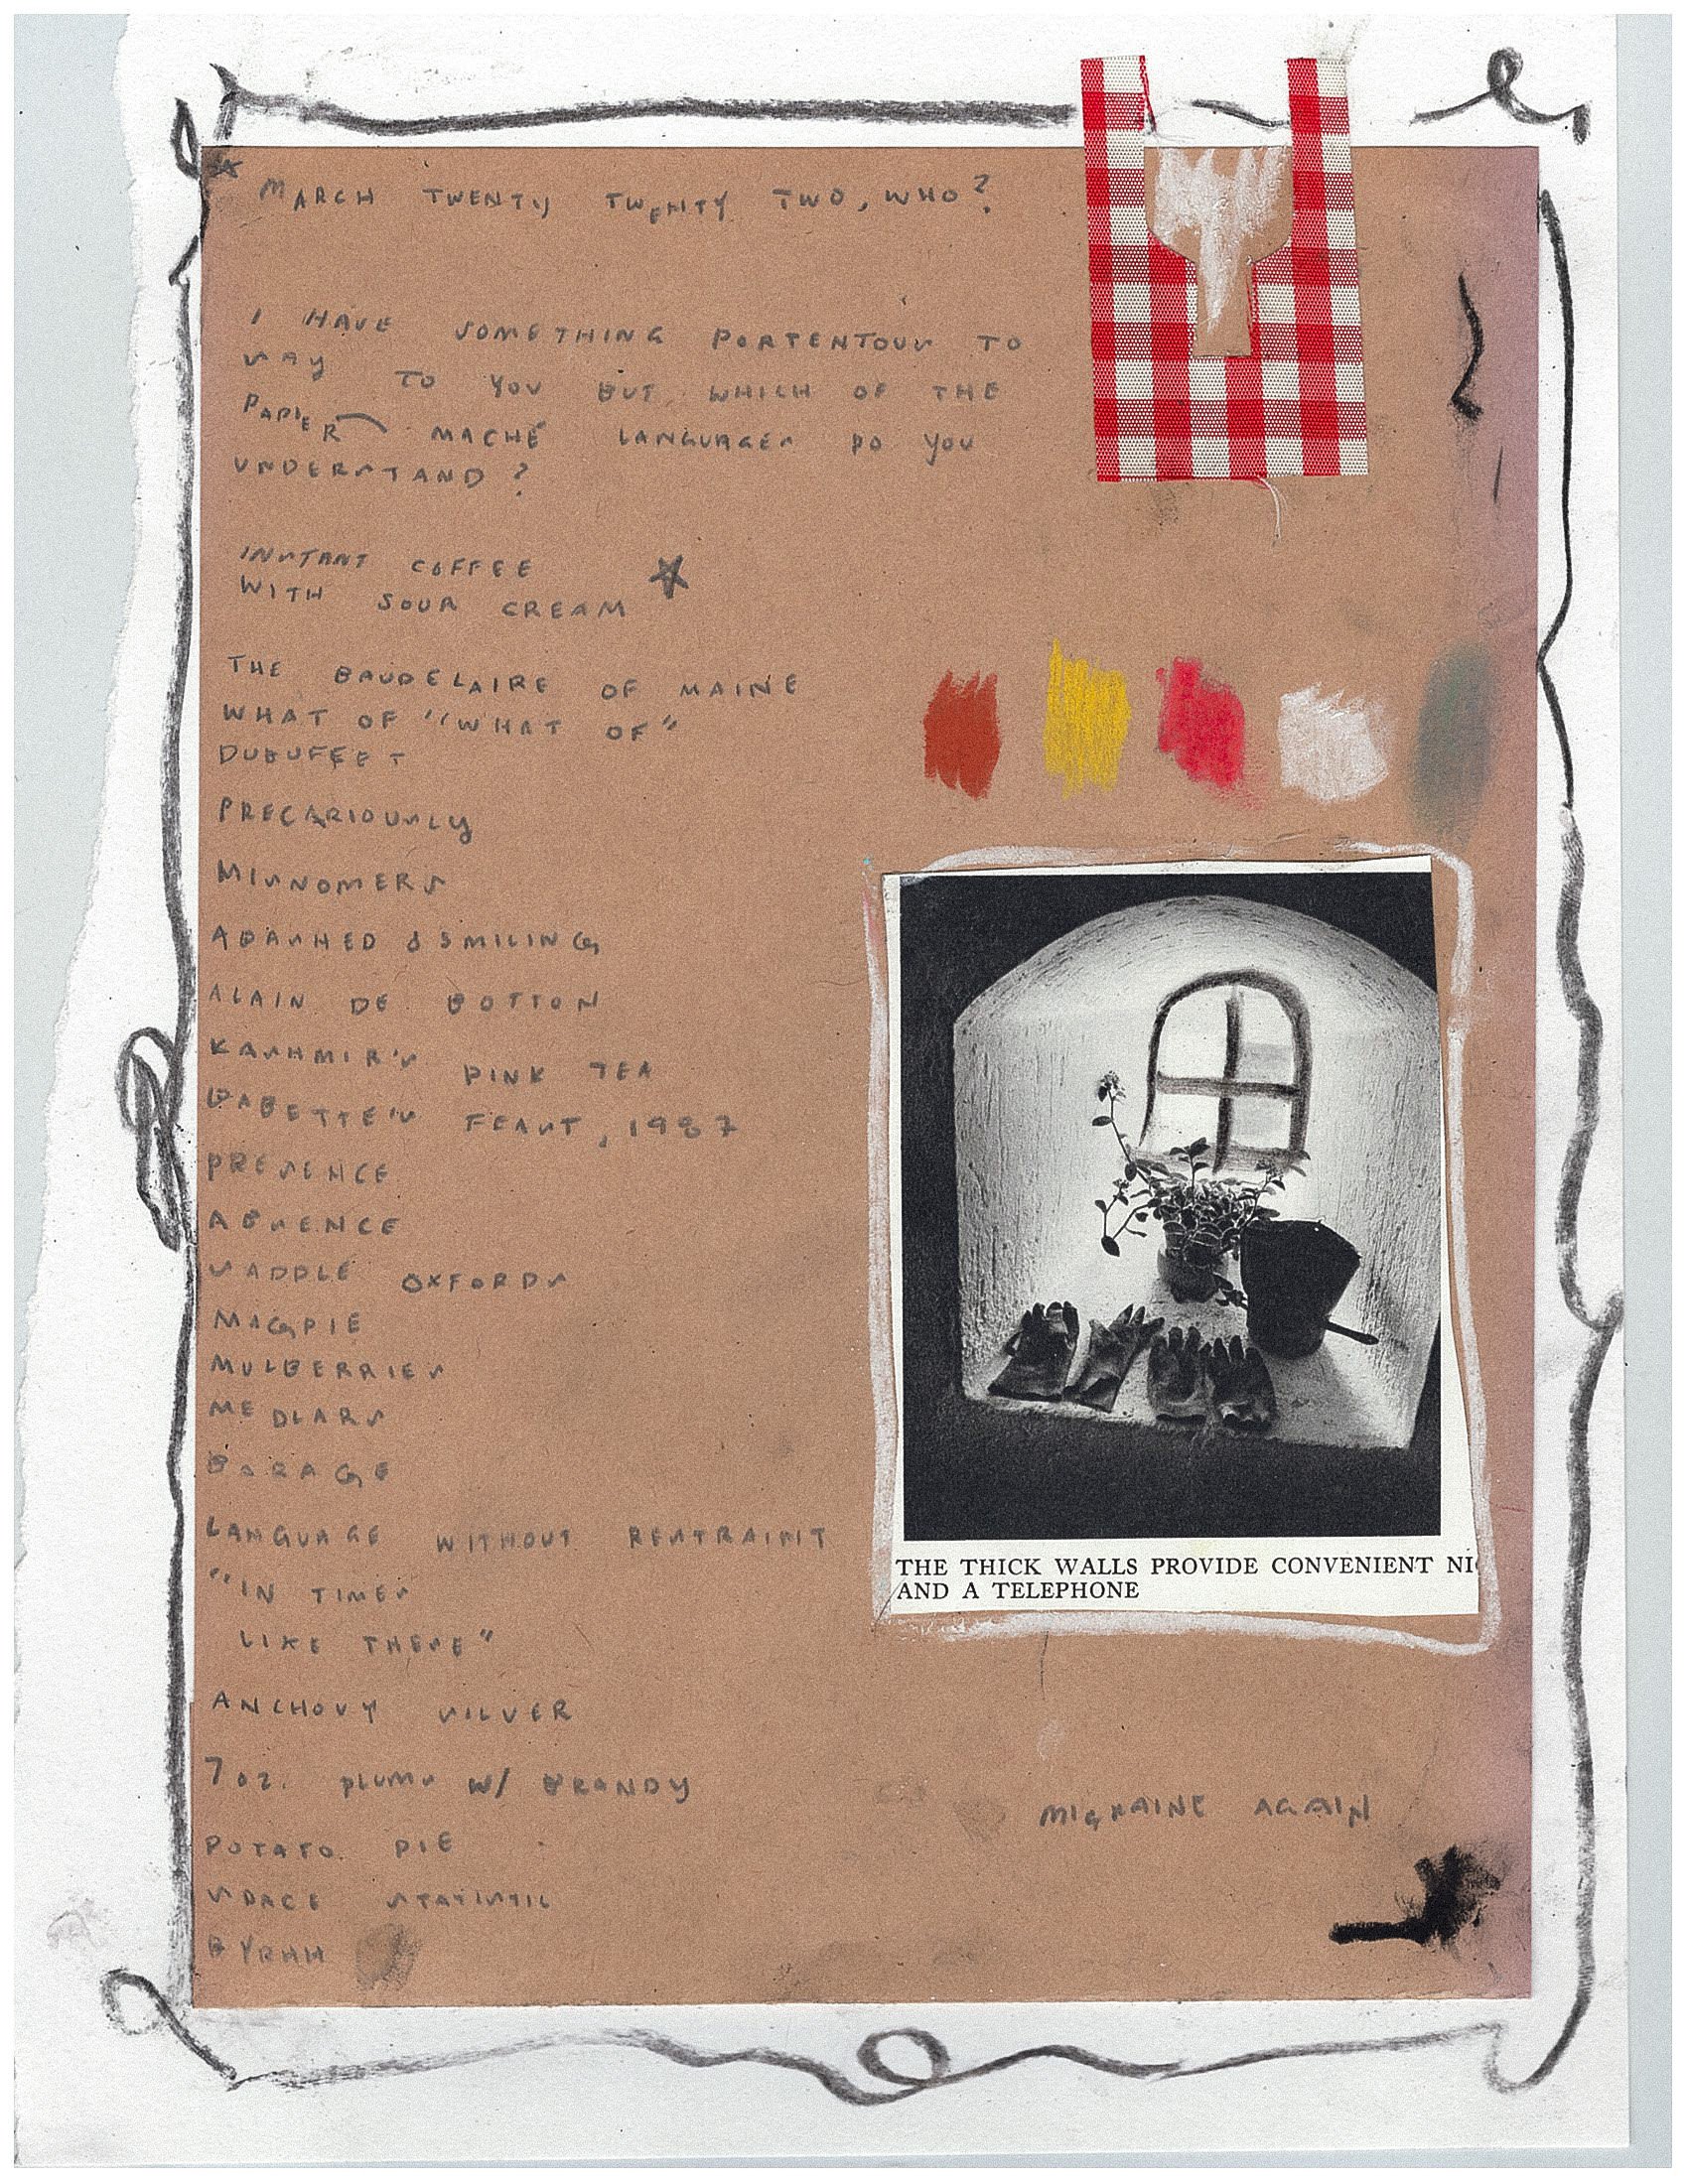 MARCH TWENTY TWENTY TWO, WHO?
I HAVE SOMETHING PORTENTOUS TO
SAY TO YOU BUT WHICH OF THE
PAPIER MACHÉ LANGUAGES DO YOU
UNDERSTAND?
INSTANT COFFEE
WITH SOUR CREAM
THE BAUDELAIRE OF MAINE
WHAT OF "WHAT OF"
DUBUFFET
PRECARIOUSLY
MISNOMERS
ABASHED & SMILING
ALAIN DE BOTTON
KASHMIR'S PINK TEA
BABETTE'S FEAST, 1987
PRESENCE
ABSENCE
SADDLE OXFORDS
MAGPIE
MULBERRIES
MEDLARS
BORAGE
LANGUAGE WITHOUT RESTRAINT
"IN TIMES
LIKE THESE"
ANCHOVY SILVER
7 oz. PLUMS W/ BRANDY
POTATO PIE
SPACE
BYRHH
THE THICK WALLS PROVIDE CONVENIENT NIC
AND A TELEPHONE
MIGRAINE AGAIN